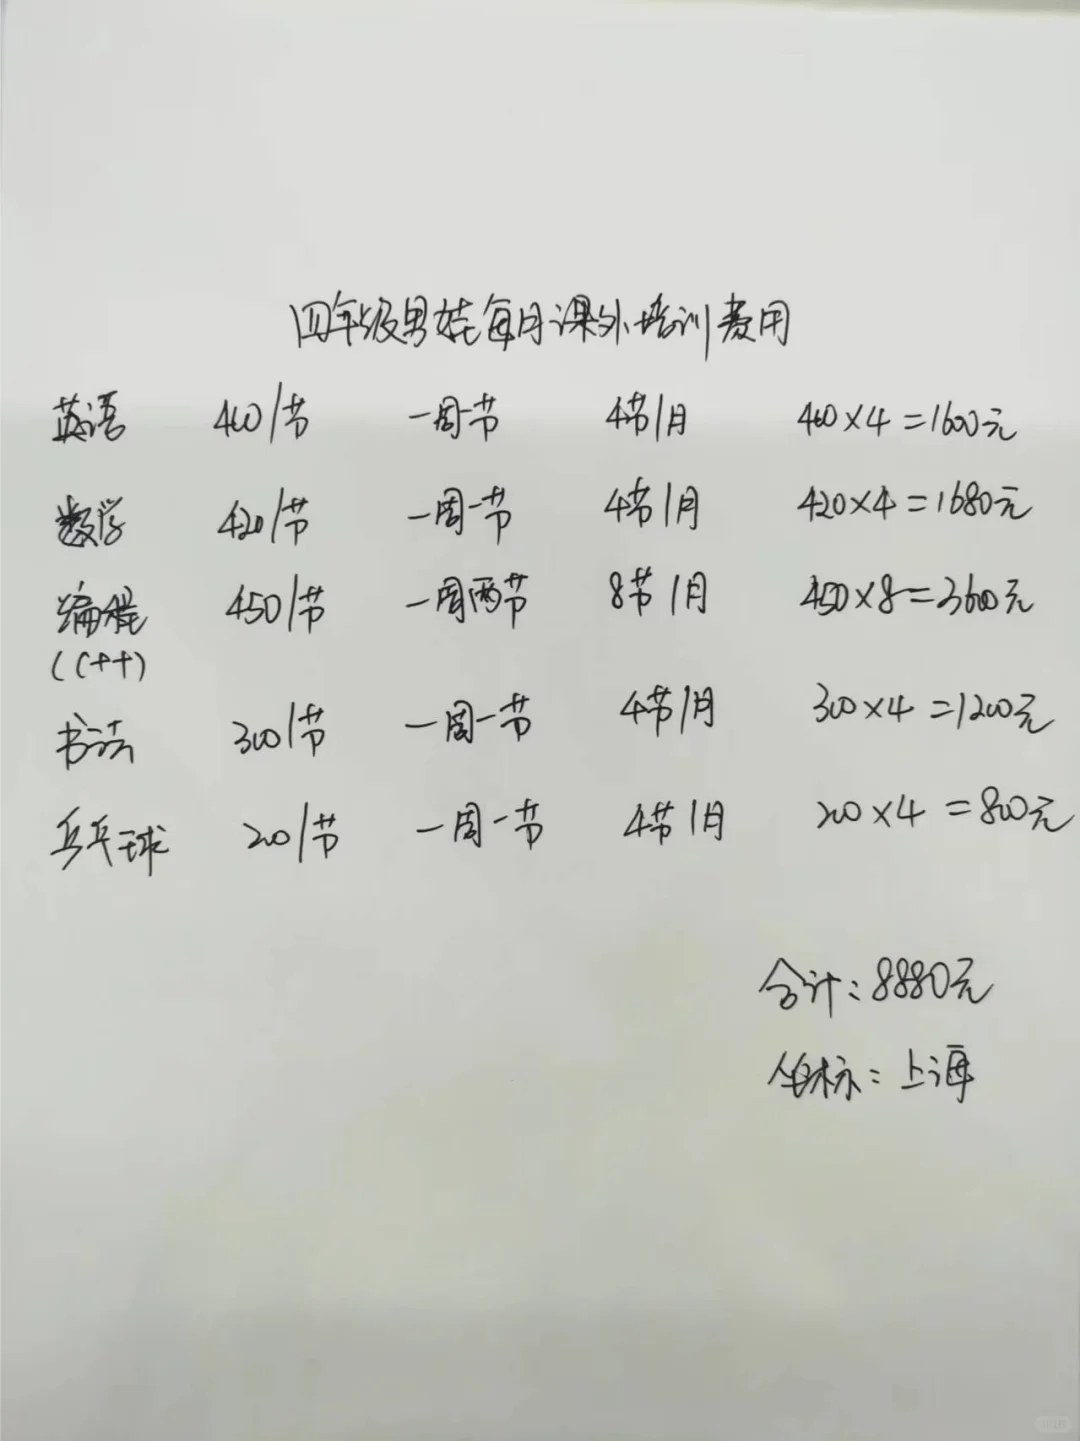 四年级男娃每月课外培训费用
英语 400/节 一周一节 4节/月 400×4=1600元
数学 420/节 一周一节 4节/月 420×4=1680元
编程 450/节 一周两节 8节/月 450×8=3600元
(C++)
书法 300/节 一周一节 4节/月 300×4=1200元
乒乓球 200/节 一周一节 4节/月 200×4=800元
合计：8880元
坐标：上海